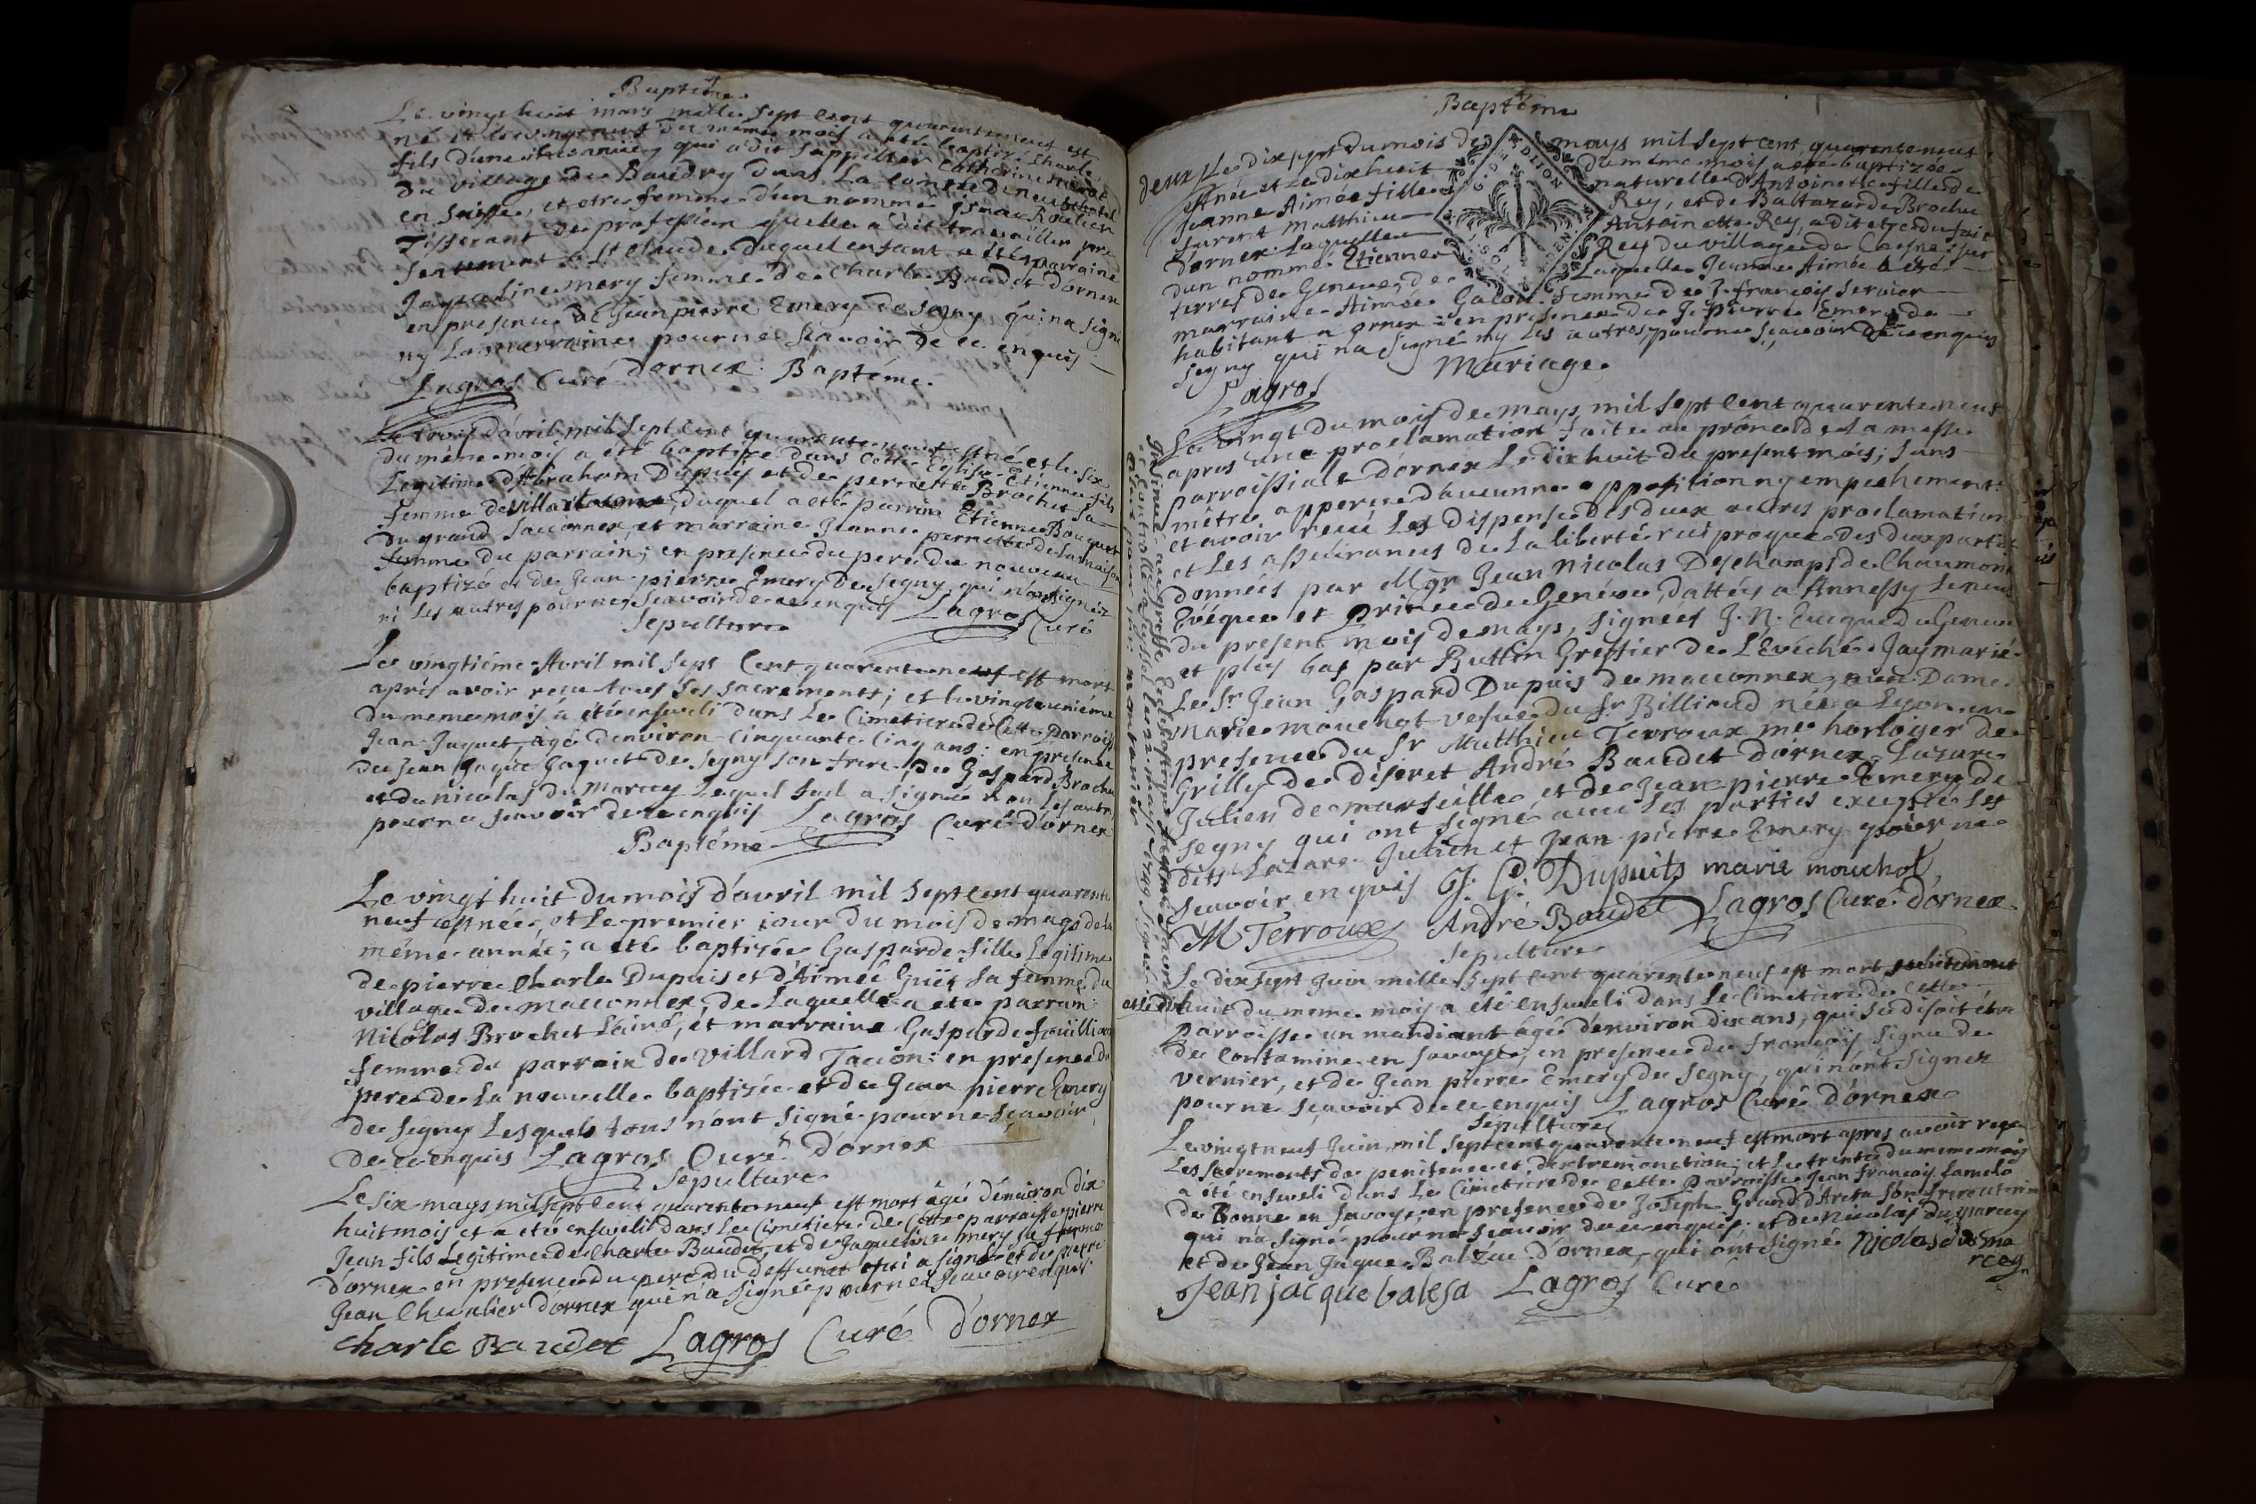 Baptême
Le vingt huit mars mille sept cent quarante neuf est
né et le vingt neuf du meme mois a été baptizé Charle
fils d'une etrangere qui a dit s'appeller Catherine
du village de Baudry dans la Comté de neufchatel
en Suisse, et etre femme d'un nommé Isaac Roulier
Tisserant de profession quelle a dit travailler pre
sentement a St Claude duquel enfant a été marraine
Jacqueline mery femme de Charle Baudet d'ornex
en presence de Jean pierre Emery de segny qui na signé
ny la marraine pour ne scavoir de ce enquis
Lagros Curé d'ornex. Baptême
Le trois d'avril mil sept cent quarante neuf est né et le six
du même mois a été baptizé dans cette Eglise Etienne fils
legitime d'Abraham Dupuis et de pernette Brochet sa
femme de villard tacon, duquel a été parrin Etienne Bouquet
du grand Saconnex, et marraine Jeanne pernette de la maison
femme du parrain; en presence du pere du nouveau
baptizé et de Jean pierre Emery de segny qui n'a signez
ni les autres pour ne scavoir de ce enquis Lagros Curé
sepulture
Le vingtième Avril mil sept cent quarante neuf est mort
après avoir reçu tous ses sacrements; et le vingt unieme
du meme mois a été enseveli dans le Cimetiere de cette parroisse
Jean Jaquet, agé denviron cinquante cinq ans: en presence
de Jean Jaque Jaquet de segny son frere, de Gaspard Brochu
et de nicolas du marcey lequel seul a signé non les autres
pour ne scavoir de ce enquis Lagros Curé d'ornex
Baptême
Le vingt huit du mois d'avril mil sept cent quarante
neuf est née, et le premier jour du mois de mays de la
même année; a été baptizée Gasparde fille legitime
de pierre Charle Dupuis et d'Aimée Guit sa femme du
village de maconnex; de laquelle a été parrain
Nicolas Brochet l'ainé, et marraine Gasparde fouilli
femme du parrain de villard Tacon: en presence du
pere de la nouvelle baptizée et de Jean pierre Emery
de segny lesquels tous n'ont signé pour ne scavoir
de ce enquis Lagros Curé d'ornex
sepulture
Le six mays mil sept cent quarante neuf est mort agé d'environ dix
huit mois et a été enseveli dans le Cimetiere de cette parroisse pierre
Jean fils legitime de Charle Baudet, et de Jaqueline mery sa femme
d'ornex en presence du pere du deffunct qui a signé et de pierre
Jean Chevalier d'ornex qui n'a signé pour ne scavoir enquis
charle Baudet Lagros Curé d'ornex
Baptême
Le dix sept du mois de mays mil sept cent quarante neuf
est née et le dix huit du meme mois a été baptizée
Jeanne Aimée fille naturelle d'Antoinette fille de
furent Matthieu Rey, et de Baltazarde Brochu
d'ornex laquelle Antoinette Rey, a dit etre du fait
d'un nommé Etienne Rey du village de sur
terres de Geneve, de laquelle Jeanne Aimée a été
marraine Aimée Galon femme de J. françois servier
habitant a ornex: en presence de J. pierre Emery de
segny qui na signé ny les autres pour ne scavoir de ce enquis
DIJON
Lagros
Mariage
Le vingt du mois de mays mil sept cent quarante neuf
apres une proclamation faite au prône de la messe
parroissiale d'ornex le dix huit du present mois; sans
m'être apperçu d'aucunne opposition ny empechement
et avoir reçu les dispenses des deux autres proclamations
et les asseurances de la liberté reciproque des deux parties
données par Mgr Jean Nicolas Deschamps de Chaumont
Evêque et Prince de Genève, dattés a Annessy le neuf
du present mois de mays, signées J. N. Evêque de Geneve
et plus bas par Buttin Greffier de l'Evêché. J'ay marié
le Sr Jean Gaspard Dupuis de maconnex, avec Dame
Marie mouchot vefve du Sr Billioud née a Lyon en
presence du Sr Matthieu Terroux me horloger de
Grilly de discret André Baudet d'ornex, Lazare
Julien de marseille, et de Jean pierre Emery de
segny qui ont signé avec les parties excepté les
dits Lazare Julien et Jean pierre Emery pour ne
scavoir enquis J. G. Dupuits marie mouchot,
M Terroux André Baudet Lagros Curé d'ornex
sepulture
Le dix sept Juin mille sept cent quarante neuf est mort subitement
et le dix huit du meme mois a été enseveli dans le Cimetiere de cette
Parroisse un mandiant agé d'environ dix ans, qui se disoit être
de Contamine en Savoye, en presence de françois signu de
vernier, et de Jean pierre Emery de segny, qui n'ont signez
pour ne scavoir de ce enquis Lagros Curé d'ornex
sepulture
Le vingt neuf Juin mil sept cent quarante neuf est mort apres avoir reçu
les sacrements de penitence et d'extremonction; et le trente du meme mois
a été enseveli dans le Cimetiere de cette parroisse Jean françois
de Bonne en Savoye, en presence de Joseph Grand d'Areta son frere uterin
qui na signé pour ne scavoir de ce enquis; et de Nicolas du marcey
et de Jean Jaque Balzac d'ornex, qui ont signé Nicolas du ma
rcey
Jean jacque balesa Lagros Curé